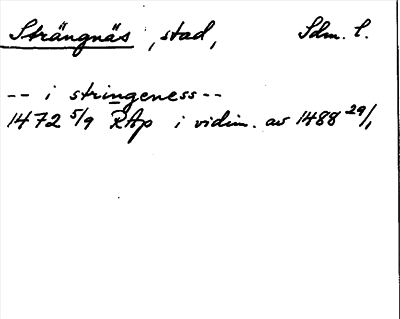 Strängnäs, stad, Sdm. l.
-- i stringeness --
1472 5/9 RAp i vidim. av 1488 29/1